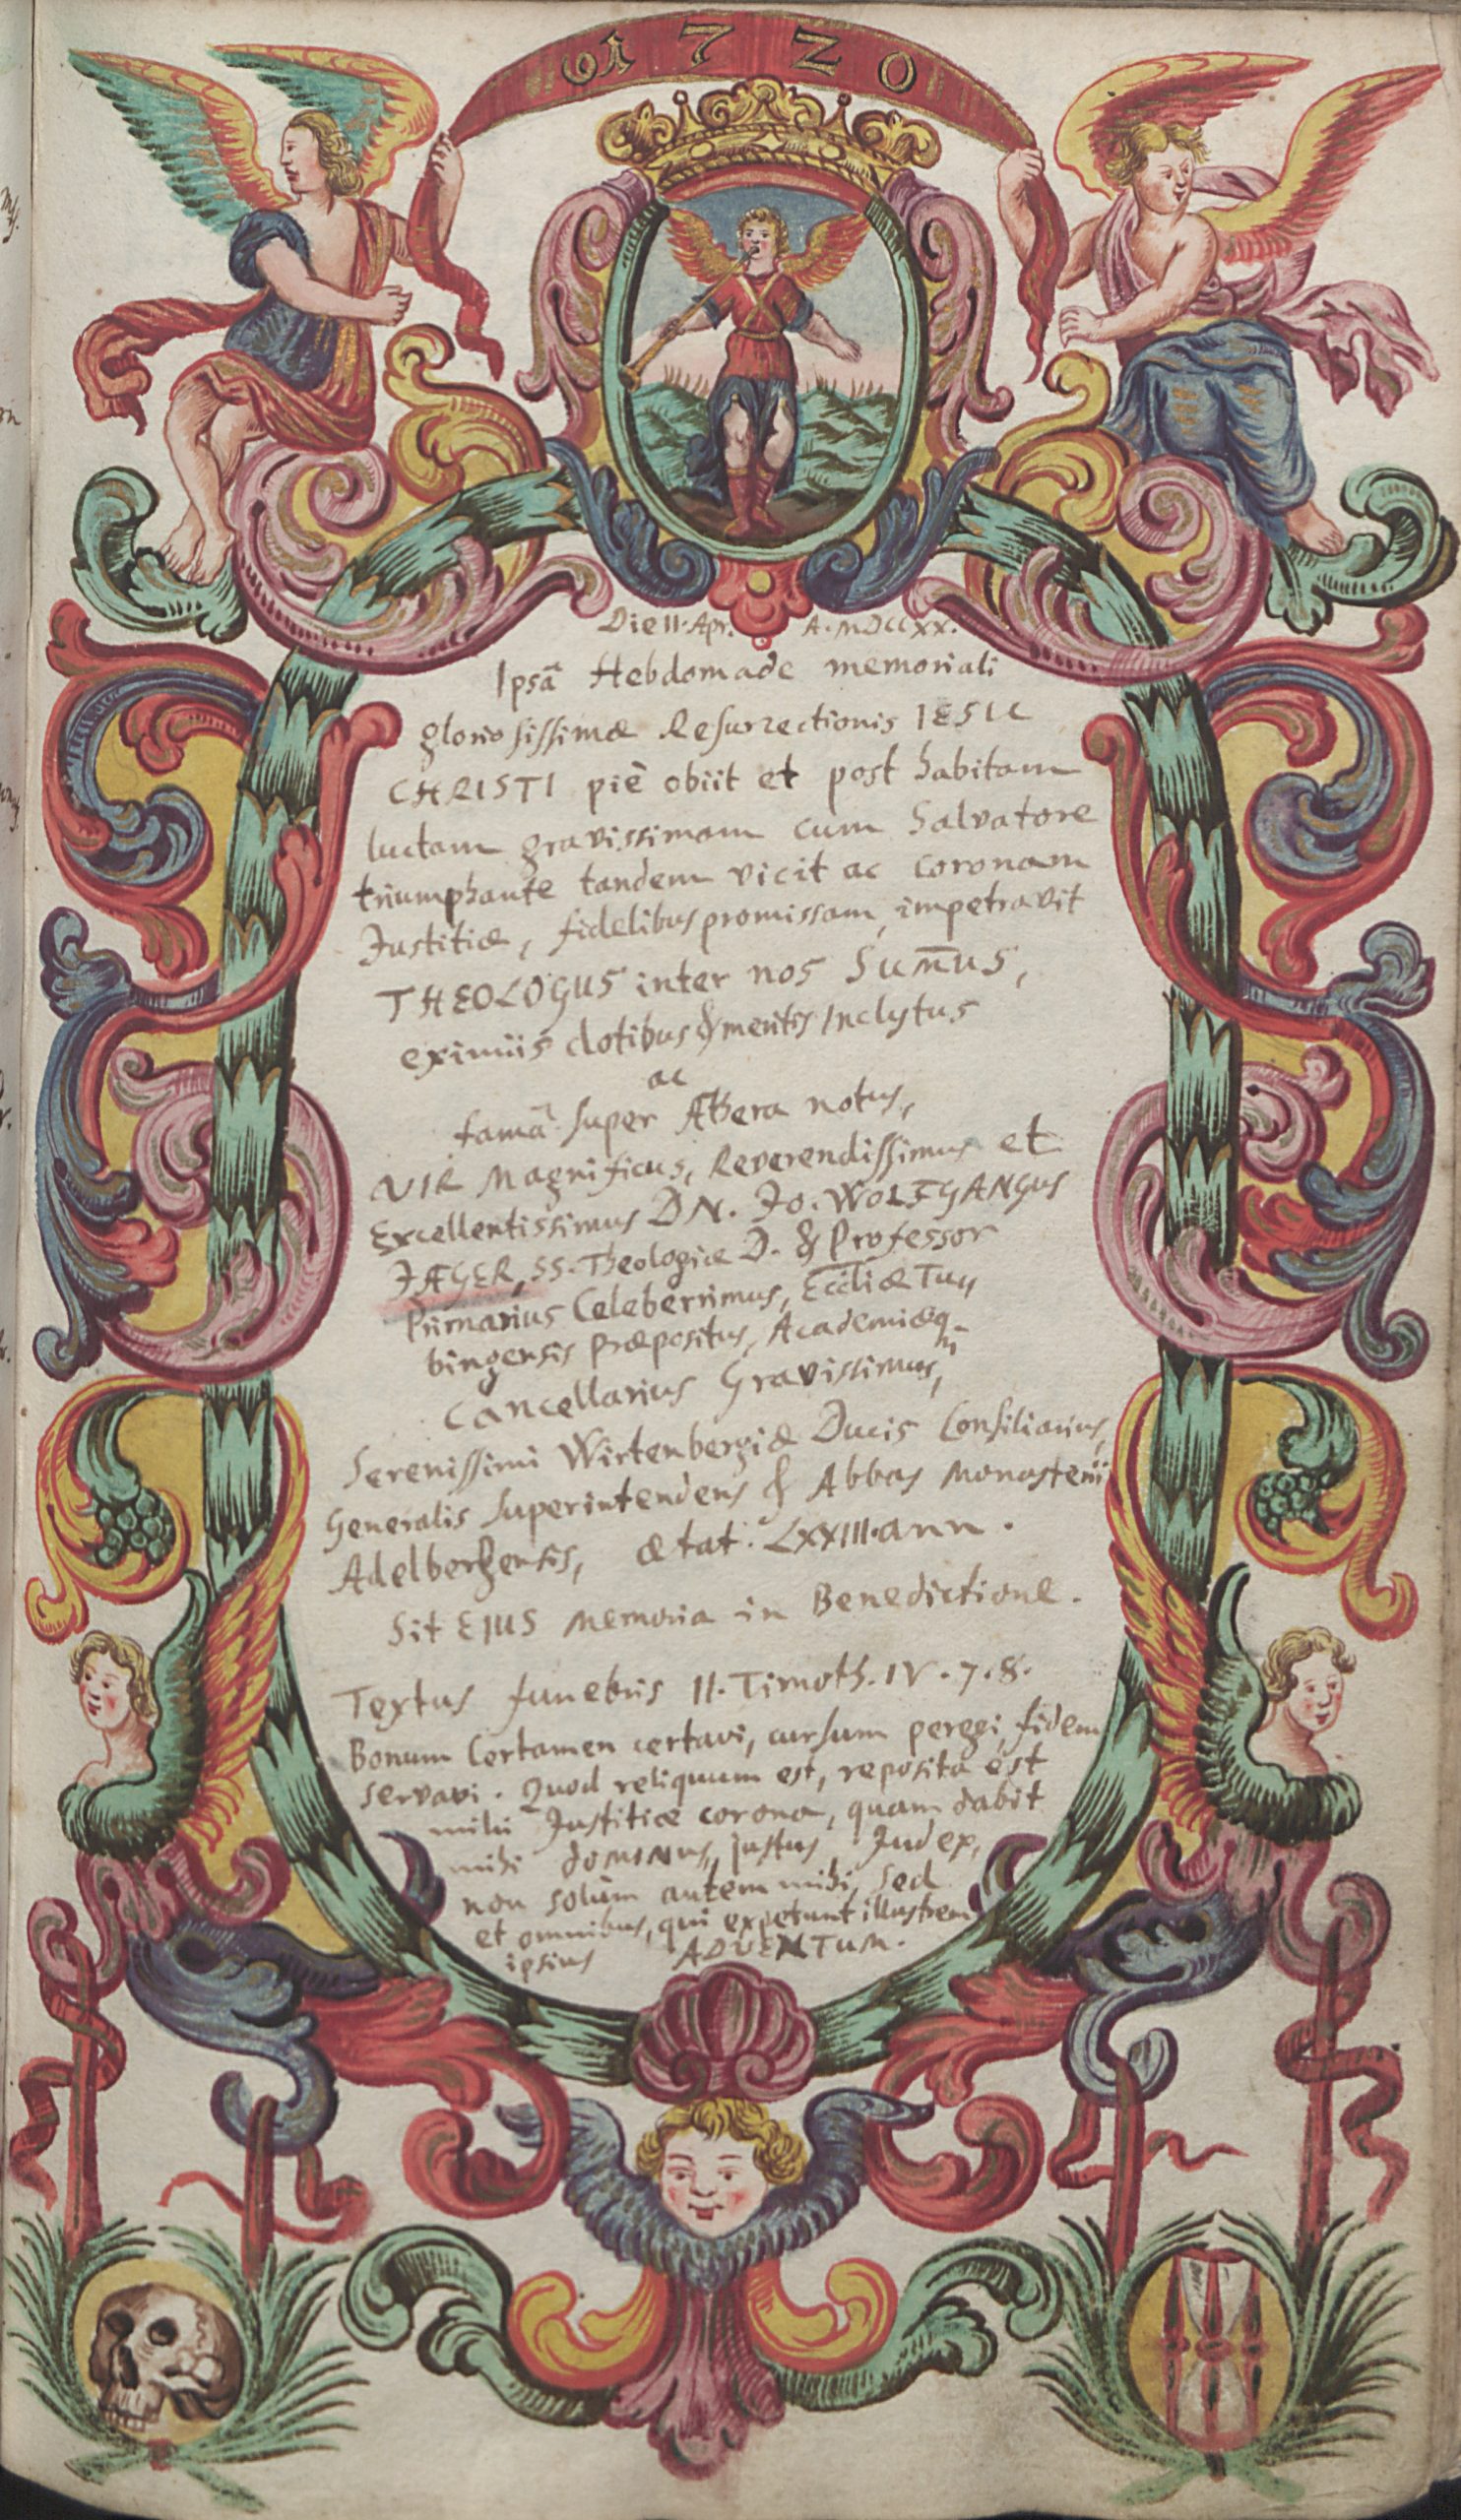 1720
Die 11. Apr. A. MDCCXX.
Ipsâ Hebdomade memoriali
gloriosissimæ Resurrectionis IESU
CHRISTI piè obiit et post habitam
luctam gravissimam cum Salvatore
triumphante tandem vicit ac coronam
Justitiæ, fidelibus promissam, impetravit
THEOLOGUS inter nos Sum̄us,
eximiis dotibus & meritis Inclytus
ac
famâ super Æthera notus,
VIR Magnificus, Reverendissimus et
Excellentissimus DN. Jo. WOLFGANGUS
JÆGER, SS. Theologiæ D. & Professor
Primarius Celeberrimus, Eccliæ Tu„
bingensis Præpositus, Academiæq.
Cancellarius Gravissimus,
Serenissimi Wirtenbergiæ Ducis Consiliarius,
Generalis Superintendens & Abbas Monasterii
Adelbergensis, ætat. LXXIII. ann.
Sit EJUS Memoria in Benedictione.
Textus funebris II. Timoth. IV. 7. 8.
Bonum Certamen certavi, cursum peregi, fidem
servavi. Quod reliquum est, reposita est
mihi Justitiæ corona, quam dabit
mihi DOMINUS, justus Judex,
non solùm autem mihi, sed
et omnibus, qui expetunt illustrem
ipsius ADVENTUM.